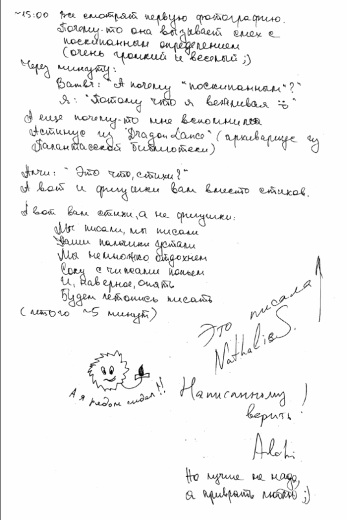 ~15:00 Все смотрят первую фотографию.
Почему-то она вызывает смех с
поскипанным определением
(очень громкий и веселый ;)
Через минуту:
: "А почему "поскипанным"?"
Я: "Потому что я вежливая
А еще почему-то мне вспомнился
Астинус из "DragonLance" (архивариус из
Палантасской библиотеки)
: "Это что, стихи?"
А вот и фигушки вам вместо стихов.
А вот вам стихи, а не фигушки:
Мы писали, мы писали
Наши пальчики устали
Мы немножко отдохнем
Соку с чипсами попьем
И, наверное, опять
Будем летопись писать
(итого ~5 минут)
Это писала
Nathalie S.
А я рядом сидел!!
Написанному
верить!
Но лучше не надо,
я приврать люблю ;)